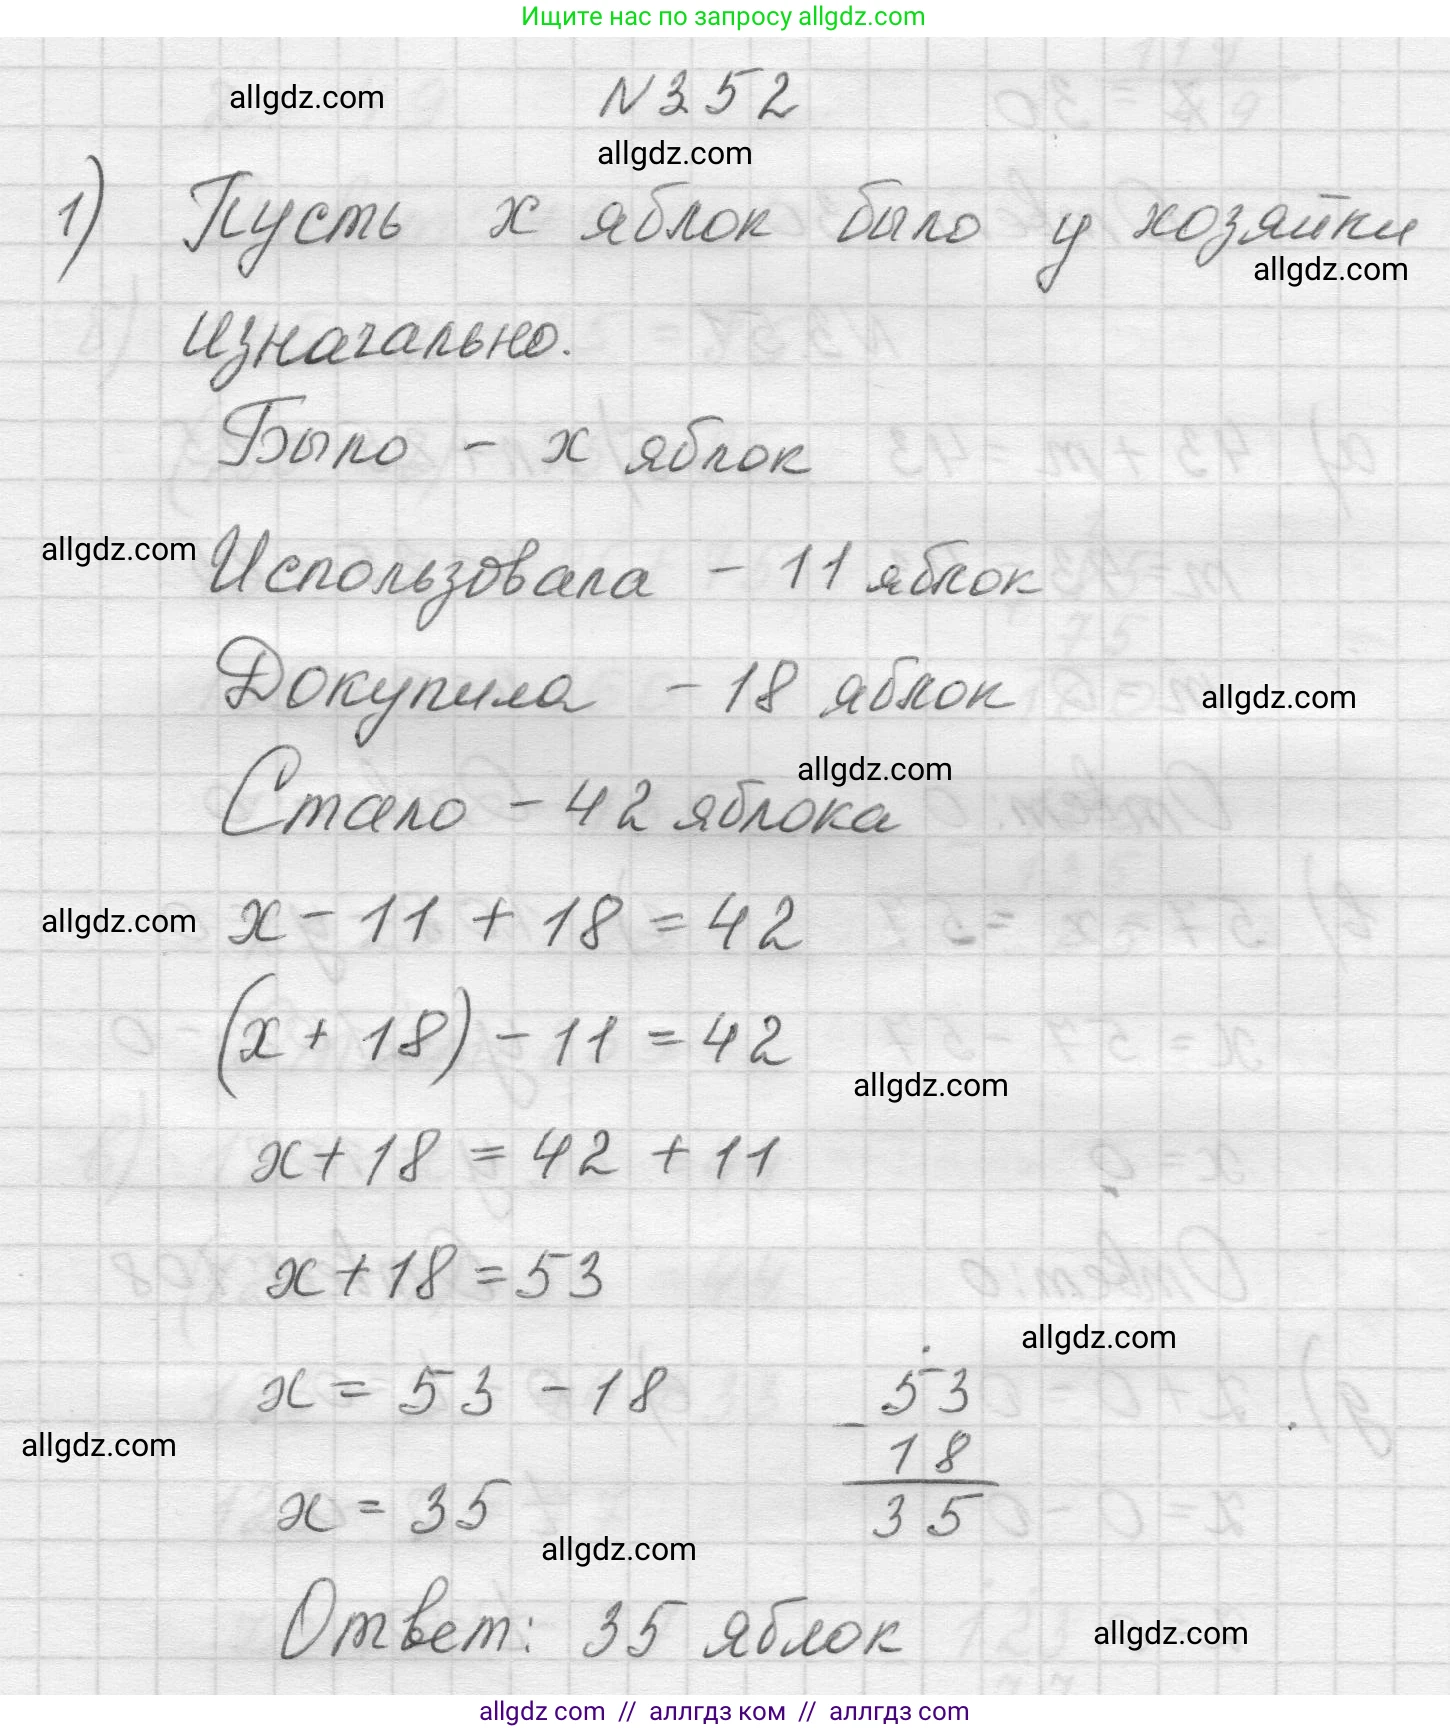 Ищите нас по запросу allgdz.com
allgdz.com
N 352
allgdz.com
1) Пусть x яблок было у хозяйки
allgdz.com
изначально.
Было - x яблок
allgdz.com
Использовала - 11 яблок
Докупила - 18 яблок
allgdz.com
allgdz.com
Стало - 42 яблока
allgdz.com
x - 11 + 18 = 42
(x + 18) - 11 = 42
allgdz.com
x + 18 = 42 + 11
x + 18 = 53
allgdz.com
x = 53 - 18
53
- 18
35
allgdz.com
x = 35
allgdz.com
Ответ: 35 яблок
allgdz.com
allgdz com // аллгдз ком // аллгдз com